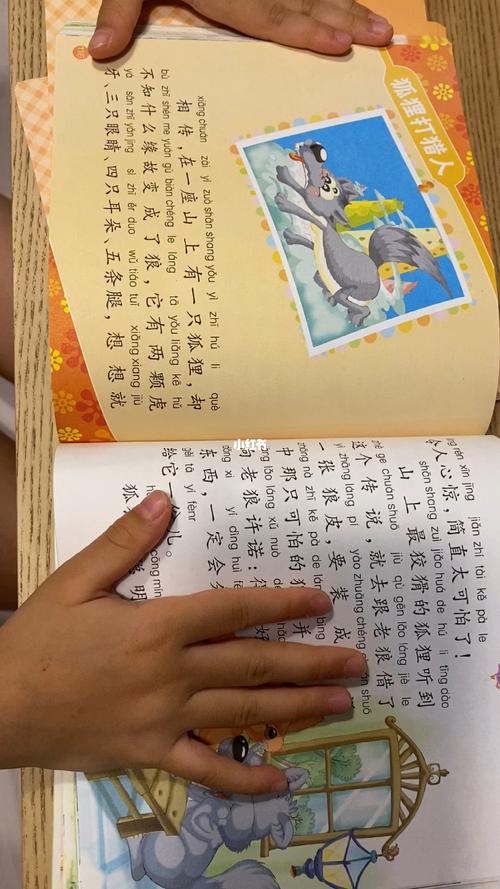 狐狸打猎人
xiāng chuán zài yí zuò shān shang yǒu yì zhī hú li què
相传，在一座山上有一只狐狸，却
bù zhī shén me yuán gù biàn chéng le láng tā yǒu liǎng kē hǔ
不知什么缘故变成了狼，它有两颗虎
yá sān zhī yǎn jing sì zhī ěr duo wǔ tiáo tuǐ xiǎng xiang jiù
牙、三只眼睛、四只耳朵、五条腿，想想就
rén xīn jīng jiǎn zhí tài kě pà le
令人心惊，简直太可怕了！
shān shang zuì jiǎo huá de hú li tīng dào
山上最狡猾的狐狸听到
zhè ge chuán shuō jiù qù gēn lǎo láng jiè le
这个传说，就去跟老狼借了
yì zhāng láng pí yào zhuāng chéng shuō
一张狼皮，要装成
zhōng nà zhī kě pà de láng bìng
中那只可怕的 并
lǎo láng xǔ nuò de hǎo
向老狼许诺：得 好
dōng xi yí dìng huì
东西，一定会
gěi tā yí fènr
给它一 儿。
cōng míng
狐 聪明
小红书